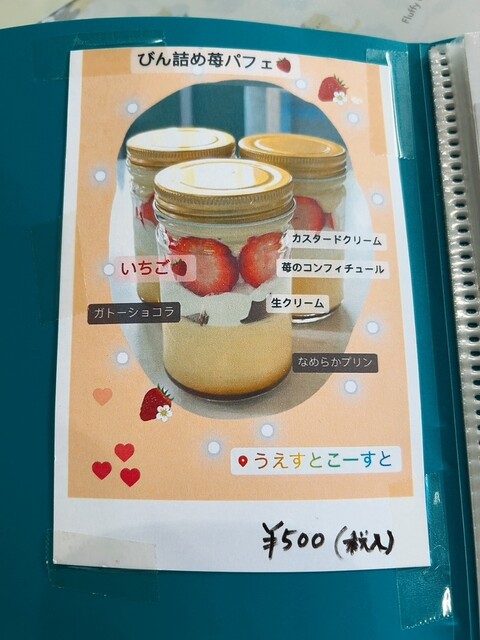 Fluffy
びん詰め苺パフェ
カスタードクリーム
いちご
苺のコンフィチュール
生クリーム
ガトーショコラ
なめらかプリン
うえすとこーすと
¥500(税入)